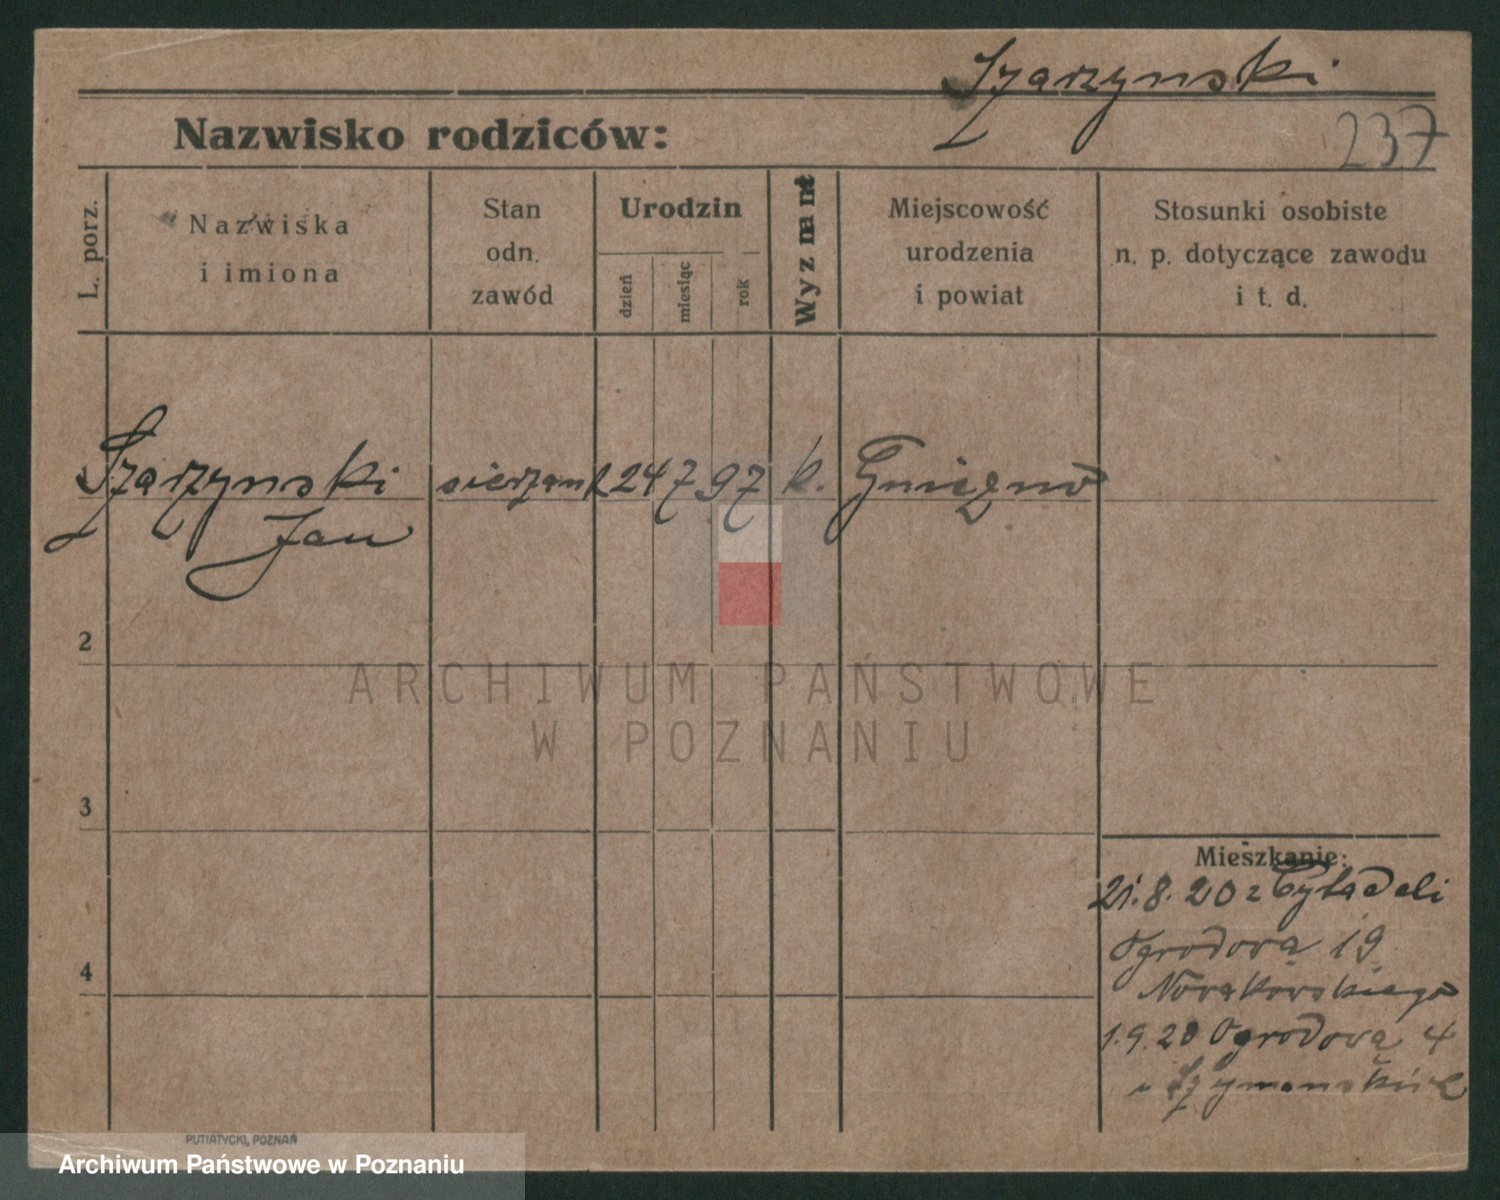 Szarzynski
Nazwisko rodziców:
237
L. porz.
Nazwiska
i imiona
Stan
odn.
zawód
Urodzin
dzień
miesiąc
rok
Wyznanie
Miejscowość
urodzenia
i powiat
Stosunki osobiste
n. p. dotyczące zawodu
i t. d.
Szarzynski sierzant 24 7 97 k. Gniezno
Jan
2
3
4
ARCHIWUM PAŃSTWOWE
W POZNANIU
Mieszkanie:
21.8.20 z Cytadeli
Ogrodowa 19
Nowakowskiego
1.9.20 Ogrodowa 4
u Szymanskich
PUTIATYCKI, POZNAŃ
Archiwum Państwowe w Poznaniu